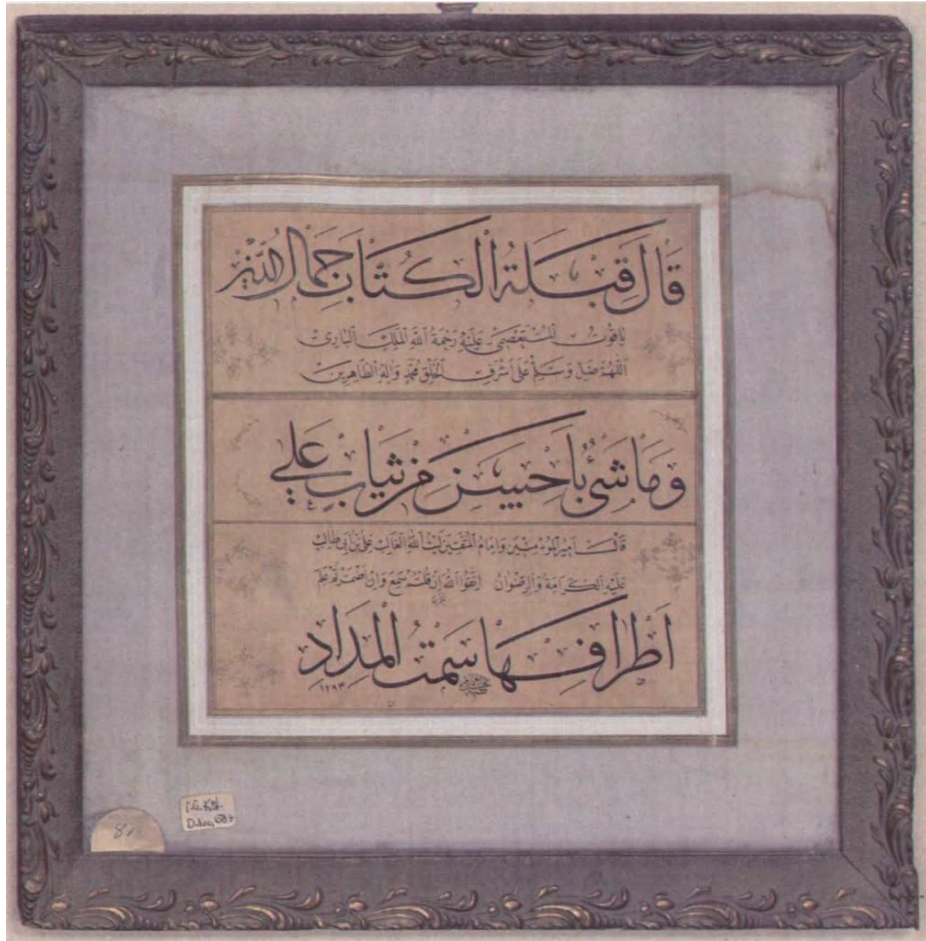 قَالَ قِبْلَةُ الْكُتَّابِ جَمَالُ الدِّينِ
يَاقُوتُ الْمُسْتَعْصِمِيُّ عَلَيْهِ رَحْمَةُ اللهِ الْمَلِكِ الْبَارِي
اَللّٰهُمَّ صَلِّ وَسَلِّمْ عَلَى أَشْرَفِ الْخَلْقِ مُحَمَّدٍ وَآلِهِ الطَّاهِرِينَ
وَمَا شَيْءٌ بِأَحْسَنَ مِنْ ثِيَابٍ عَلَى
قَالَ أَمِيرُ الْمُؤْمِنِينَ وَإِمَامُ الْمُتَّقِينَ لَيْثُ اللهِ الْغَالِبُ عَلِيُّ بْنُ أَبِي طَالِبٍ
عَلَيْهِ الْكَرَامَةُ وَالرِّضْوَانُ اِتَّقُوا اللهَ إِنْ قُلْتُمْ سَمِعَ وَإِنْ أَضْمَرْتُمْ عَلِمَ
أَطْرَافِهَا سِمَةُ الْمِدَادِ
١٢٩٣
81